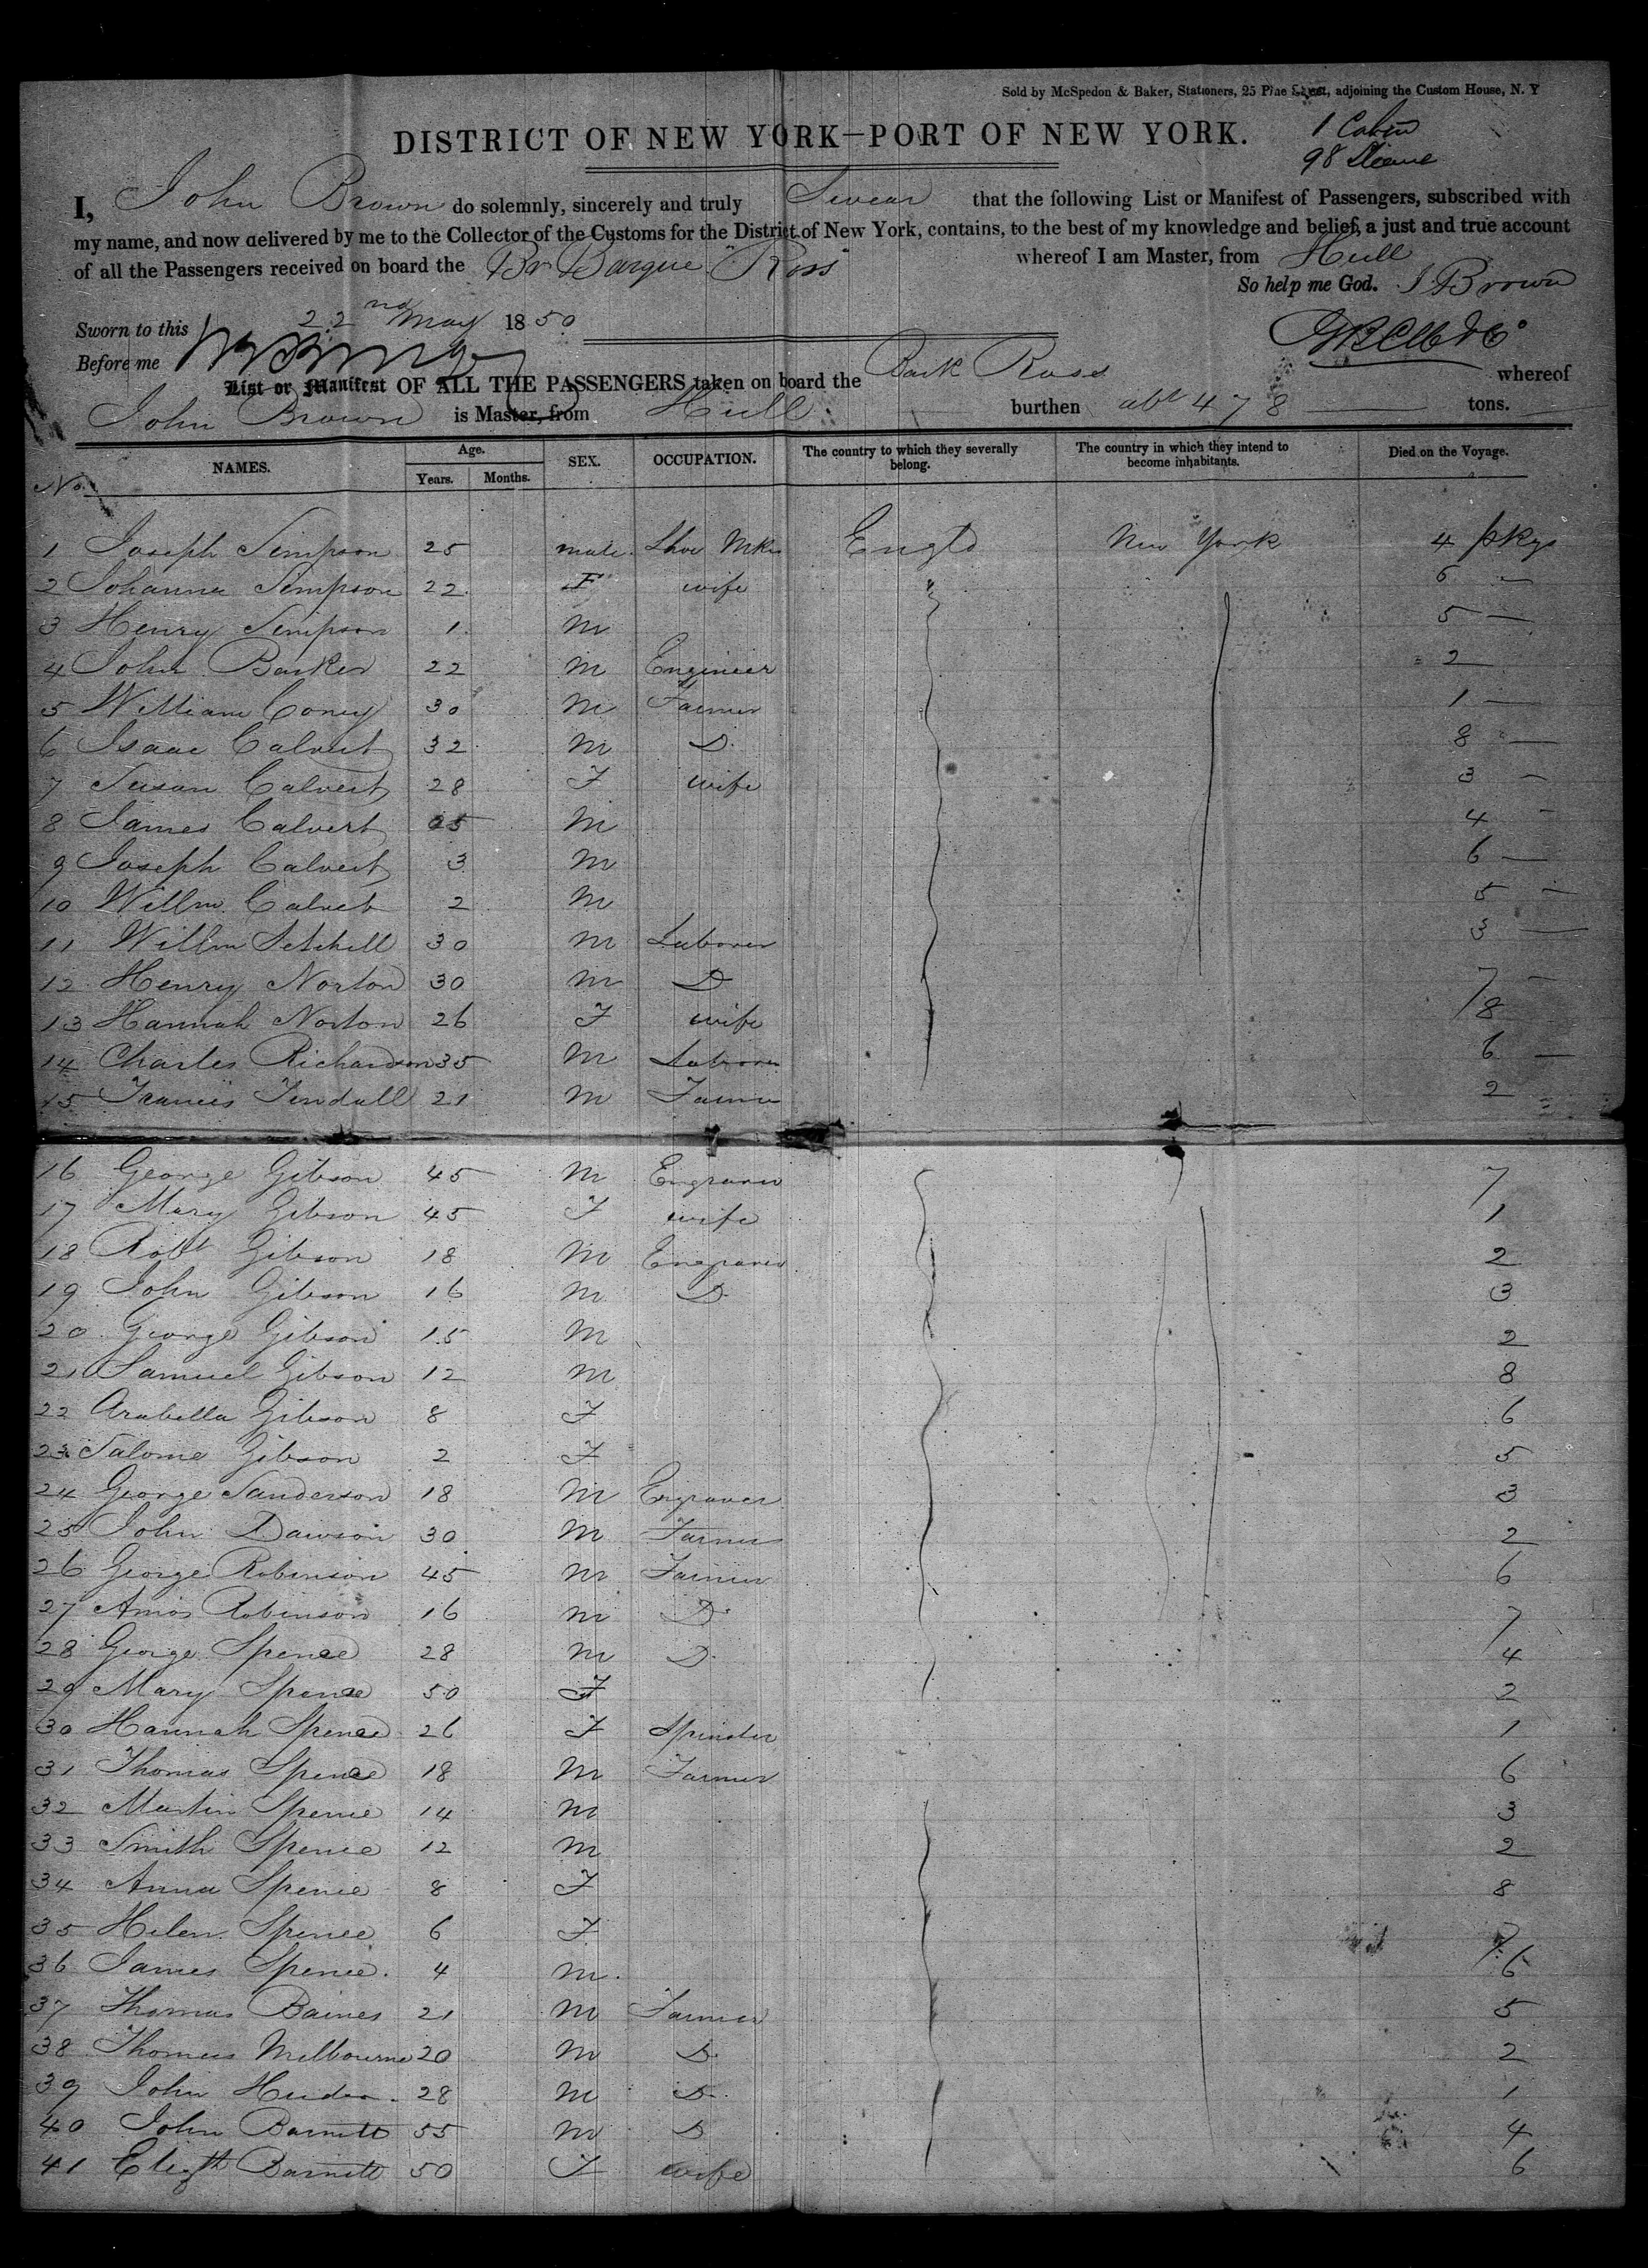 Sold by McSpedon & Baker, Stationers, 25 Pine Street, adjoining the Custom House, N. Y
DISTRICT OF NEW YORK—PORT OF NEW YORK.
1 Cabin
98
I, John Brown do solemnly, sincerely and truly Swear that the following List or Manifest of Passengers, subscribed with
my name, and now delivered by me to the Collector of the Customs for the District of New York, contains, to the best of my knowledge and belief, a just and true account
of all the Passengers received on board the Br Barque "Ross" whereof I am Master, from Hull
So help me God. J Brown
Sworn to this 22nd May 1850
Before me
List or Manifest OF ALL THE PASSENGERS taken on board the Bark Ross whereof
John Brown is Master, from Hull. burthen abt 478 tons.
No. NAMES. Age. Years. Months. SEX. OCCUPATION. The country to which they severally belong. The country in which they intend to become inhabitants. Died on the Voyage.
1 Joseph Simpson 25 male. Shoe Mkr Engld New York 4 pkgs
2 Johanna Simpson 22 F wife " 6 —
3 Henry Simpson 1 M 5 —
4 John Barker 22 M Engineer 2
5 William Coney 30 M Farmer 1 —
6 Isaac Calvert 32 M D. 8 —
7 Susan Calvert 28 F wife 3 —
8 James Calvert 5 M 4 -
9 Joseph Calvert 3 M 6 —
10 Willm. Calvert 2 M 5 —
11 Willm 30 M Laborer 3 —
12 Henry Norton 30 M D 7 —
13 Hannah Norton 26 F wife 8 —
14 Charles Richardson 35 M Laborer 6 —
15 Francis Tindall 21 M Farmer 2
16 George Gibson 45 M Engraver 7
17 Mary Gibson 45 F wife 1
18 Robt Gibson 18 M Engraver 2
19 John Gibson 16 M D. 3
20 George Gibson 15 M 2
21 Samuel Gibson 12 M 8
22 Arabella Gibson 8 F 6
23 Salome Gibson 2 F 5
24 George Sanderson 18 M Engraver 3
25 John Dawson 30 M Farmer 2
26 George Robinson 45 M Farmer 6
27 Amos Robinson 16 M D. 7
28 George Spence 28 M D. 4
29 Mary Spence 50 F 2
30 Hannah Spence 26 F Spinster 1
31 Thomas Spence 18 M Farmer 6
32 Martin Spence 14 M 3
33 Smith Spence 12 M 2
34 Anna Spence 8 F 8
35 Helen Spence 6 F 7
36 James Spence. 4 M. 6
37 Thomas Baines 21 M Farmer 5
38 Thomas Melbourne 20 M D. 2
39 John 28 M D. 1
40 John Barnett 55 M D 4
41 Elizth Barnett 50 F wife 6